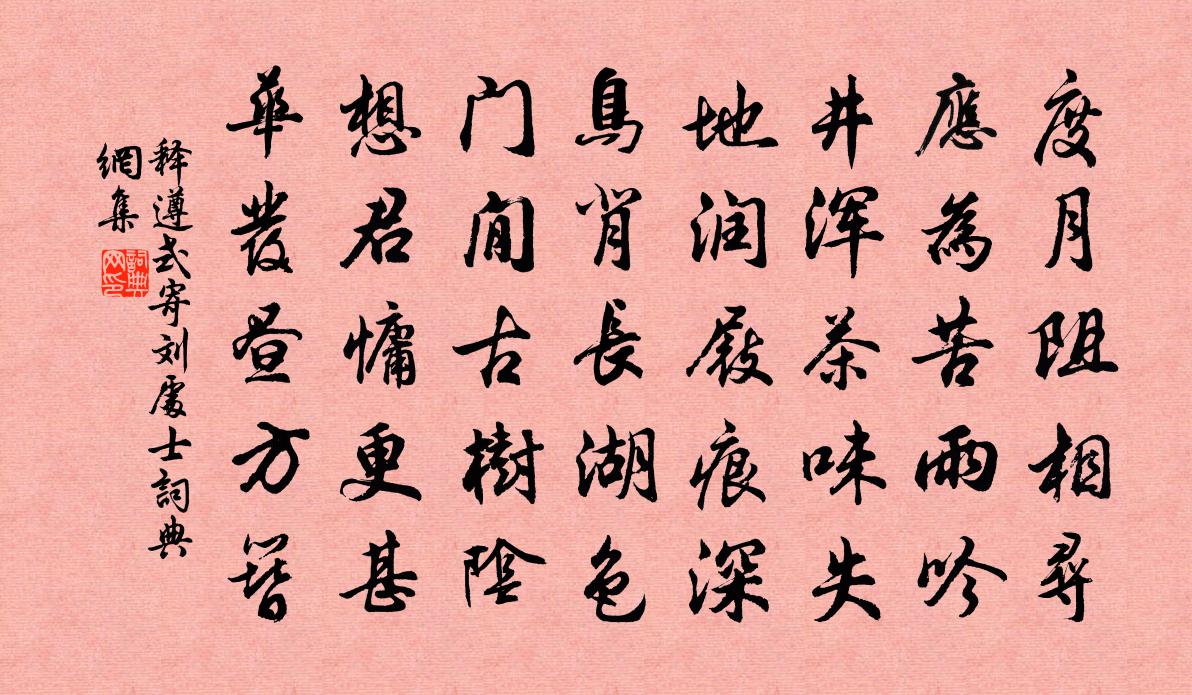 度月阻相尋
應為苦雨吟
井浑茶味失
地润屐痕深
鳥肖長湖色
门閒古樹陰
想君慵更甚
華發昼方簪
释遵式寄刘處士詞典
網集
詞典网印